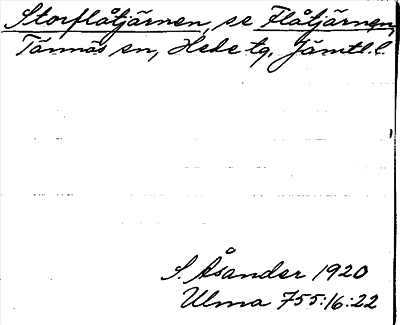 Storflåtjärnen, se Flåtjärnen,
Tännäs sn, Hede tg. Jämtl.l.
S. Åsander 1920
Ulma 755:16:22